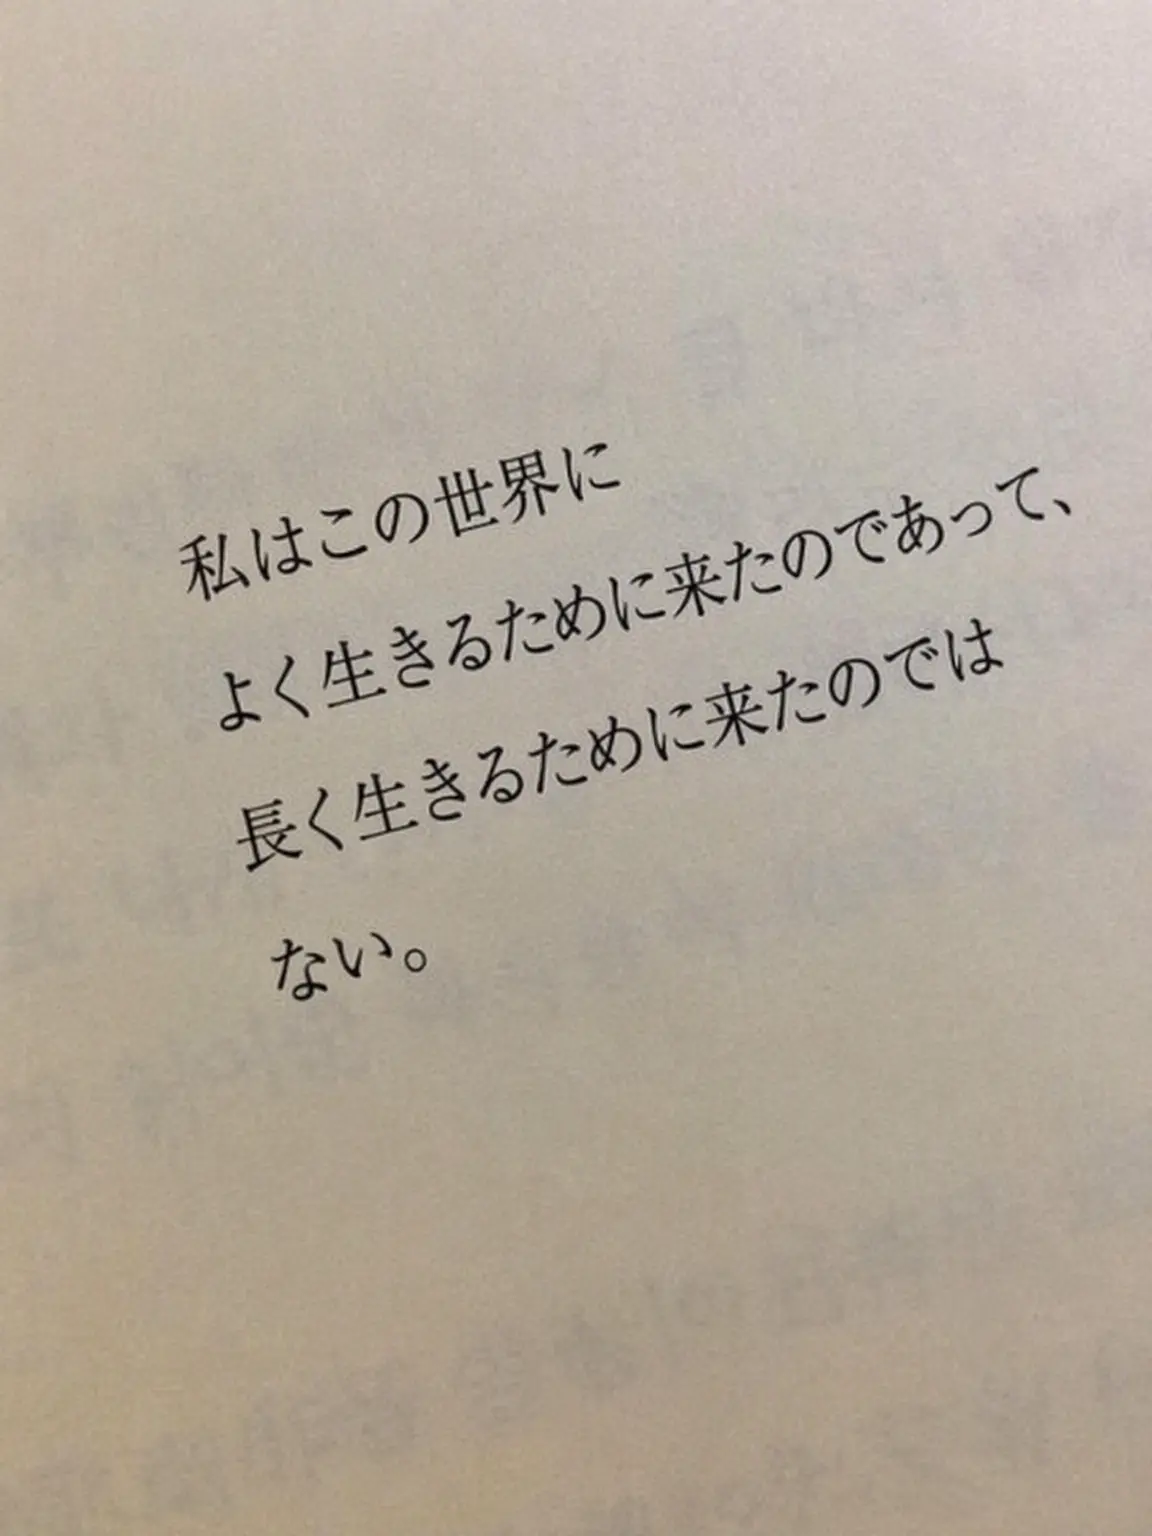 私はこの世界に
よく生きるために来たのであって、
長く生きるために来たのでは
ない。